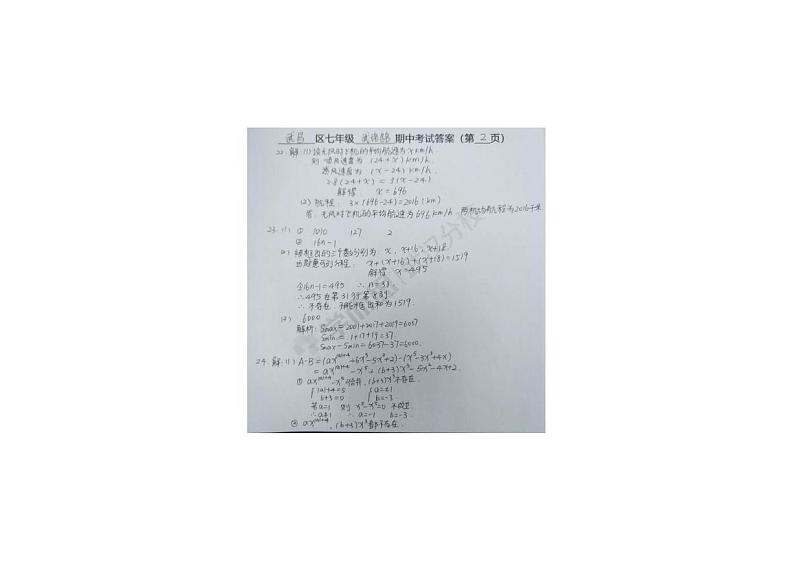 武昌 区七年级 武珞路 期中考试答案（第 2 页）
22.解：(1)设无风时飞机的平均航速为xkm/h.
则顺风速度为 (24+x) km/h.
逆风速度为 (x-24) km/h.
2.8(24+x) = 3(x-24)
解得： x = 696
(2) 航程： 3×(696-24)=2016(km)
答：无风时飞机的平均航速为696km/h, 两机场的航程为2016千米.
23. (1) ① 1010 127 2
② 16n-1
(2) 被框住的三个数分别为：x, x+16, x+18
由题意可列方程： x+(x+16)+(x+18)=1519
解得：x=495
令16n-1=495 ∴n=31
∴495在第31行第8列
∴不存在，不能框出和为1519.
(3) 6000
解析：Smax=2001+2017+2019=6037
Smin = 1+17+19=37.
Smax-Smin=6037-37=6000.
24.解：(1) A-B=(ax|a|+4+6x3-5x2+2)-(x5-3x3+4x)
= ax|a|+4-x5+(b+3)x3-5x2-4x+2
① ax|a|+4-x5可合并, (b+3)x3不存在.
{|a|+4=5 {a=±1
b+3=0 b=-3
若a=1 则 x5-x5=0 不成立
∴a≠1 ∴a=-1 b=-3.
② ax|a|+4, (b+3)x3都不存在.